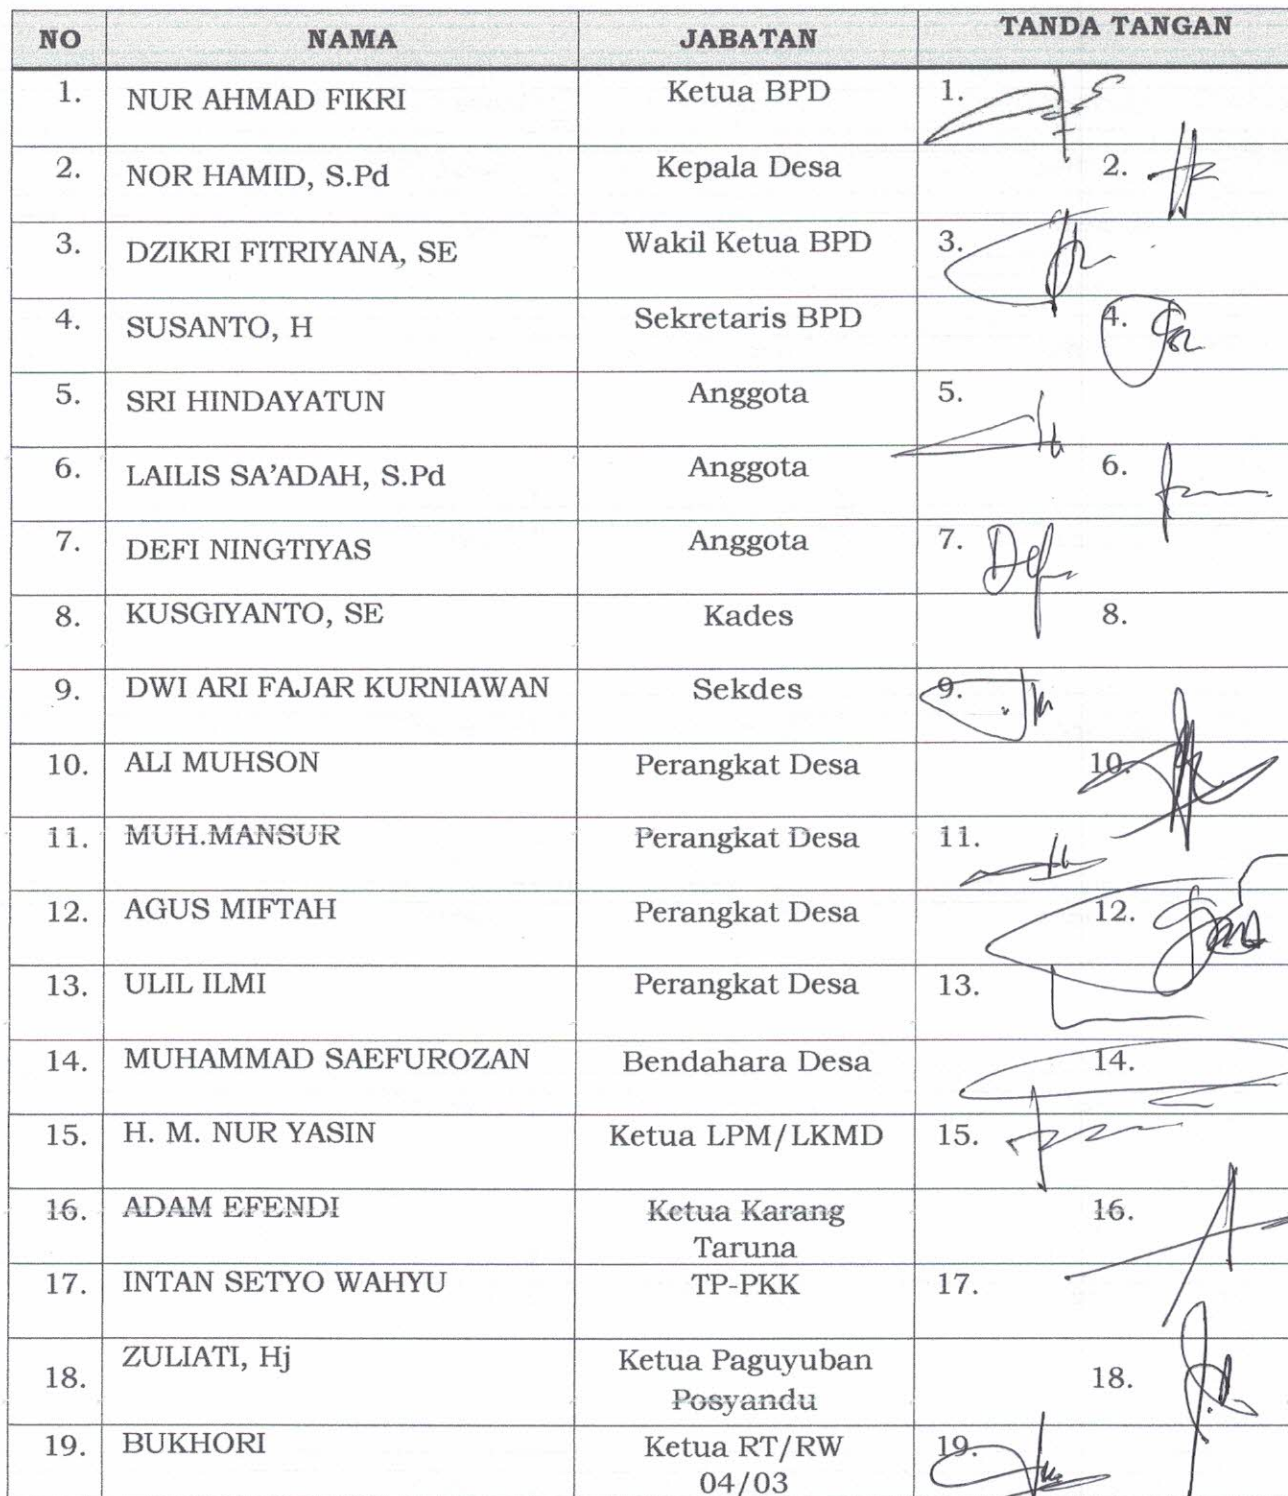 NO NAMA JABATAN TANDA TANGAN
1. NUR AHMAD FIKRI Ketua BPD 1.
2. NOR HAMID, S.Pd Kepala Desa 2.
3. DZIKRI FITRIYANA, SE Wakil Ketua BPD 3.
4. SUSANTO, H Sekretaris BPD 4.
5. SRI HINDAYATUN Anggota 5.
6. LAILIS SA'ADAH, S.Pd Anggota 6.
7. DEFI NINGTIYAS Anggota 7.
8. KUSGIYANTO, SE Kades 8.
9. DWI ARI FAJAR KURNIAWAN Sekdes 9.
10. ALI MUHSON Perangkat Desa 10.
11. MUH.MANSUR Perangkat Desa 11.
12. AGUS MIFTAH Perangkat Desa 12.
13. ULIL ILMI Perangkat Desa 13.
14. MUHAMMAD SAEFUROZAN Bendahara Desa 14.
15. H. M. NUR YASIN Ketua LPM/LKMD 15.
16. ADAM EFENDI Ketua Karang 16.
Taruna
17. INTAN SETYO WAHYU TP-PKK 17.
18. ZULIATI, Hj Ketua Paguyuban 18.
Posyandu
19. BUKHORI Ketua RT/RW 19.
04/03